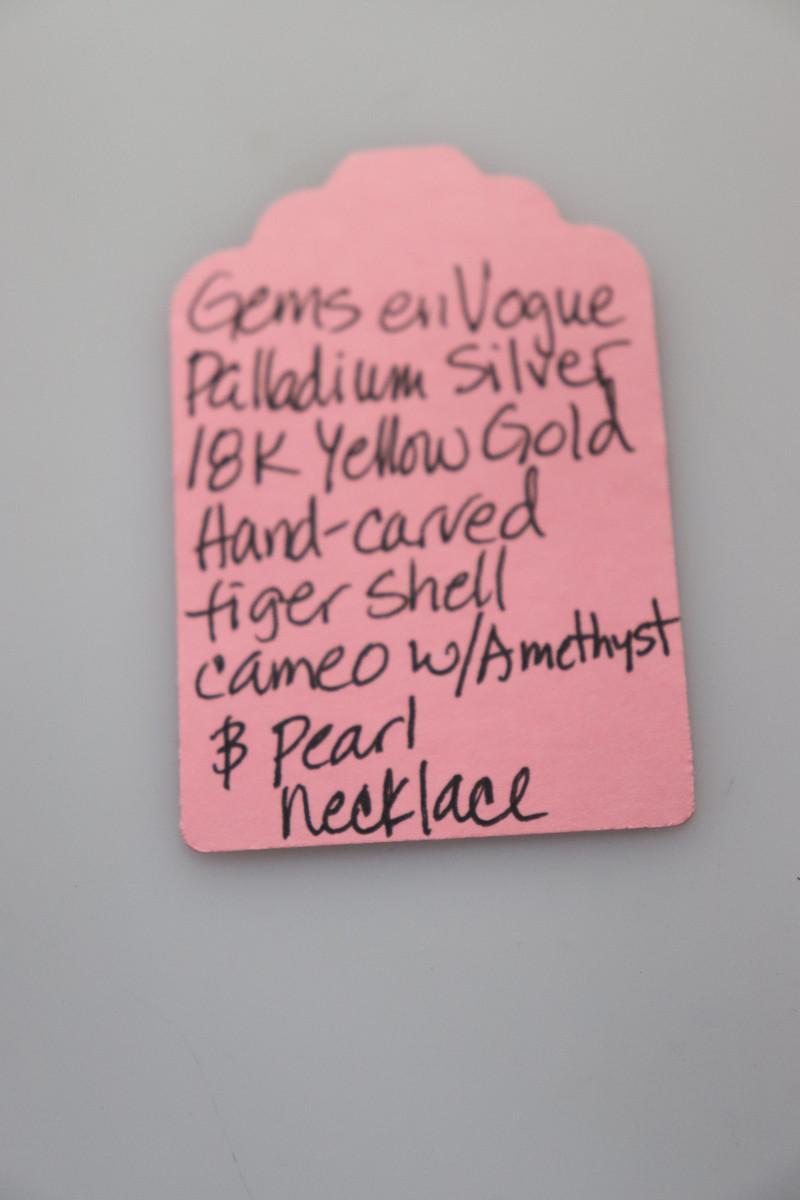 Gems en Vogue
Palladium Silver
18K Yellow Gold
Hand-carved
tiger shell
cameo w/Amethyst
& Pearl
necklace